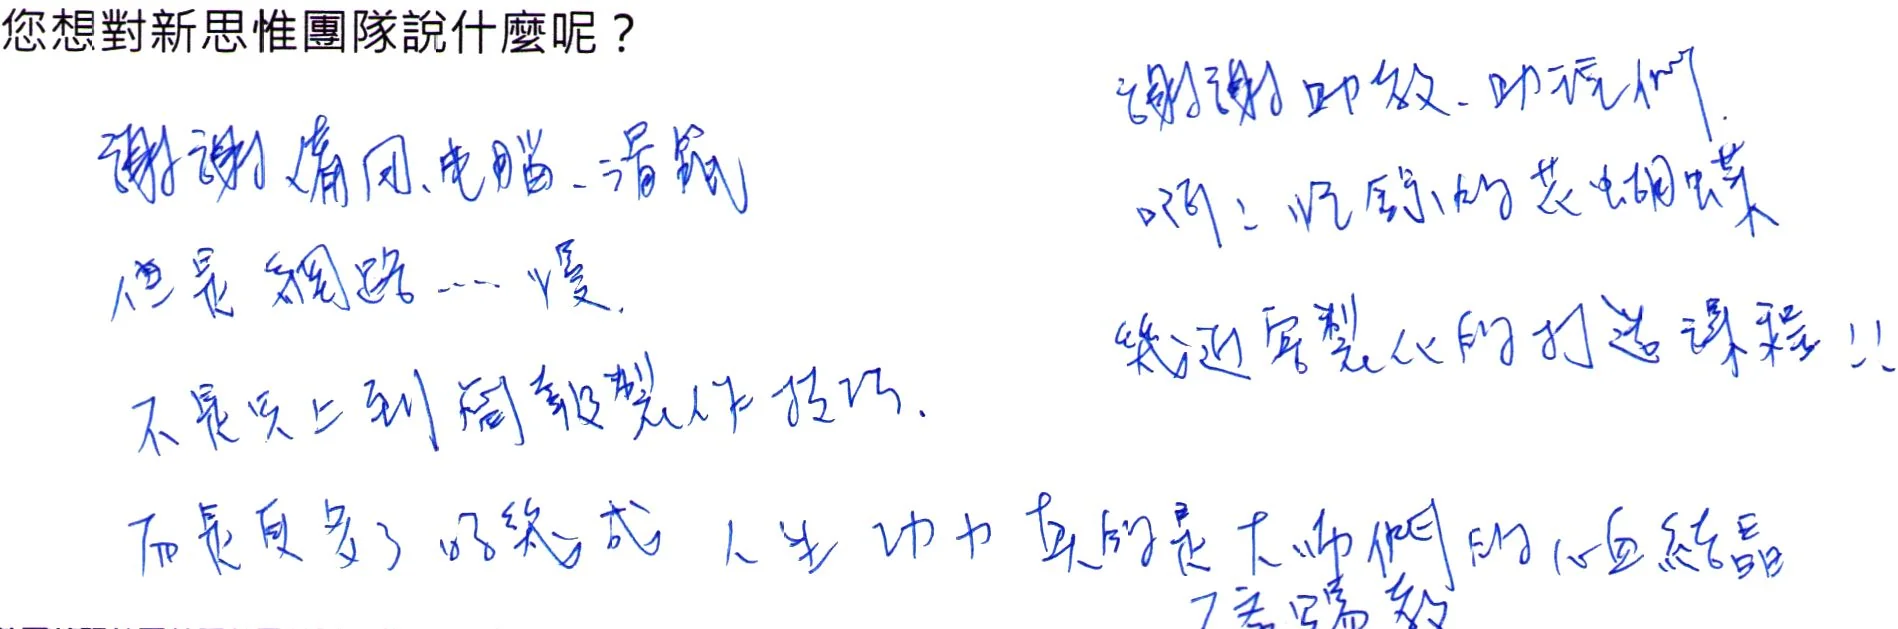 您想對新思惟團隊說什麼呢？
謝謝 電腦、滑鼠
但是 網路…… 慢.
不是只上到簡報製作技巧.
而是更多了好幾成 人生 功力 真的是大師們的心血結晶
謝謝助教、助玩們.
啊：吃餘的花蝴蝶
幾近客製化的打造課程!!